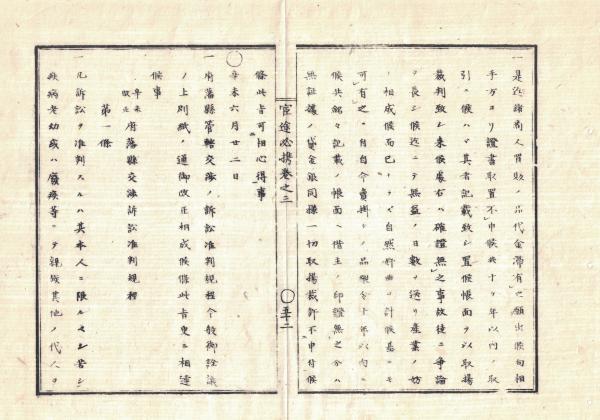 一是迄諸商人買取ノ品代金滞有之願出候向相
手方ヨリ證書取置不申候共十ケ年以内ノ取
引ニ候ハヽ其者記載致シ置候帳面ヲ以取揚
裁判致シ来候處右ハ確證無之事故徒ニ争論
ヲ長シ候迄ニテ無益ノ日数ヲ送リ産業ノ妨
ニ相成候而已ナラス自然奸曲ノ計候基ニモ
可有之ニ付自今賣掛シ品縦令十年以内ニ
候共銘々記載ノ帳面ヘ借主ノ印證無之分ハ
無証據ノ貸金銀同様一切取揚裁許不申付候
官途必携巻之三
〇五十二
條此旨可相心得事
〇辛未六月廿二日
一府藩縣管轄交渉ノ訴訟准判規程今般御詮議
ノ上別紙ノ通御改正相成候條此旨更ニ相達
候事
辛未改正 府藩縣交渉訴訟准判規程
第一條
一凡訴訟ヲ准判スルハ其本人ニ限ルヘシ若シ
疾病老幼或ハ癈疾等ニテ親族其他ノ代人ヲ